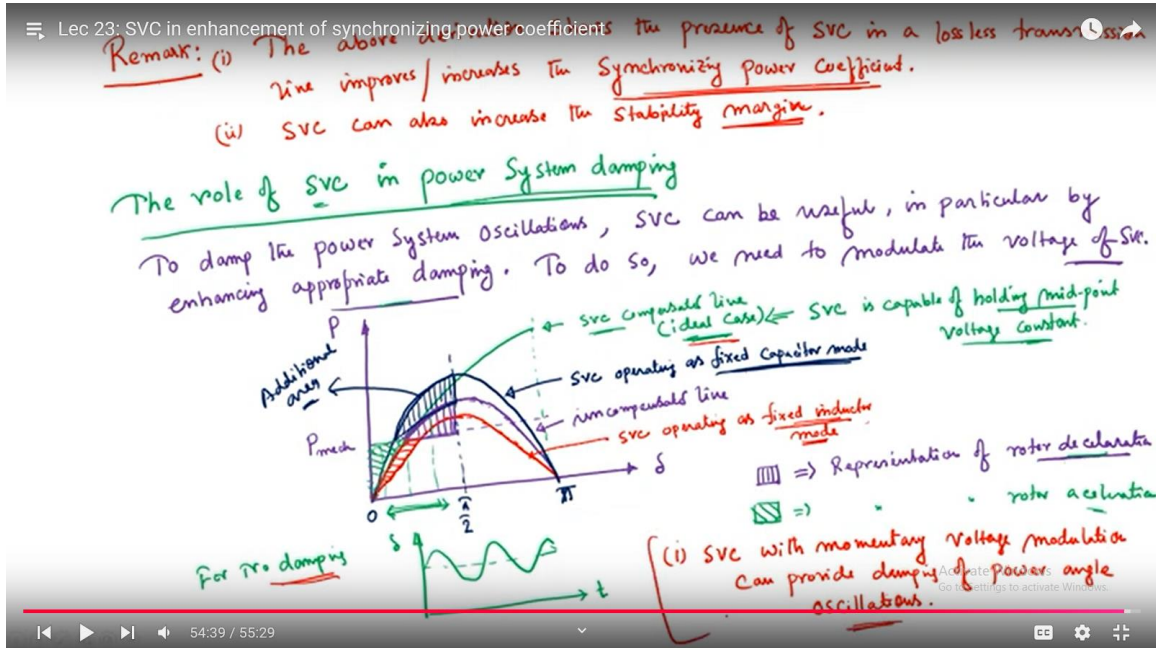 Lec 23: SVC in enhancement of synchronizing power coefficient
Remark: (i) The above the presence of SVC in a lossless transmission
line improves/increases the Synchronizing power Coefficient.
(ii) SVC can also increase the Stability margin.
The role of SVC in power System damping
To damp the power System Oscillations, SVC can be useful, in particular by
enhancing appropriate damping. To do so, we need to modulate the voltage of SVC.
P
SVC compensated line
(ideal case) <= SVC is capable of holding mid-point
voltage constant.
Additional
area
SVC operating as fixed Capacitor mode
uncompensated line
SVC operating as fixed inductor
mode
Pmech
δ
0
π/2
π
=> Representation of rotor deceleration
=> " " rotor acceleration
For no damping
δ
t
(i) SVC with momentary voltage modulation
Can provide damping of power angle
oscillations.
Activate Windows
Go to Settings to activate Windows.
54:39 / 55:29
CC